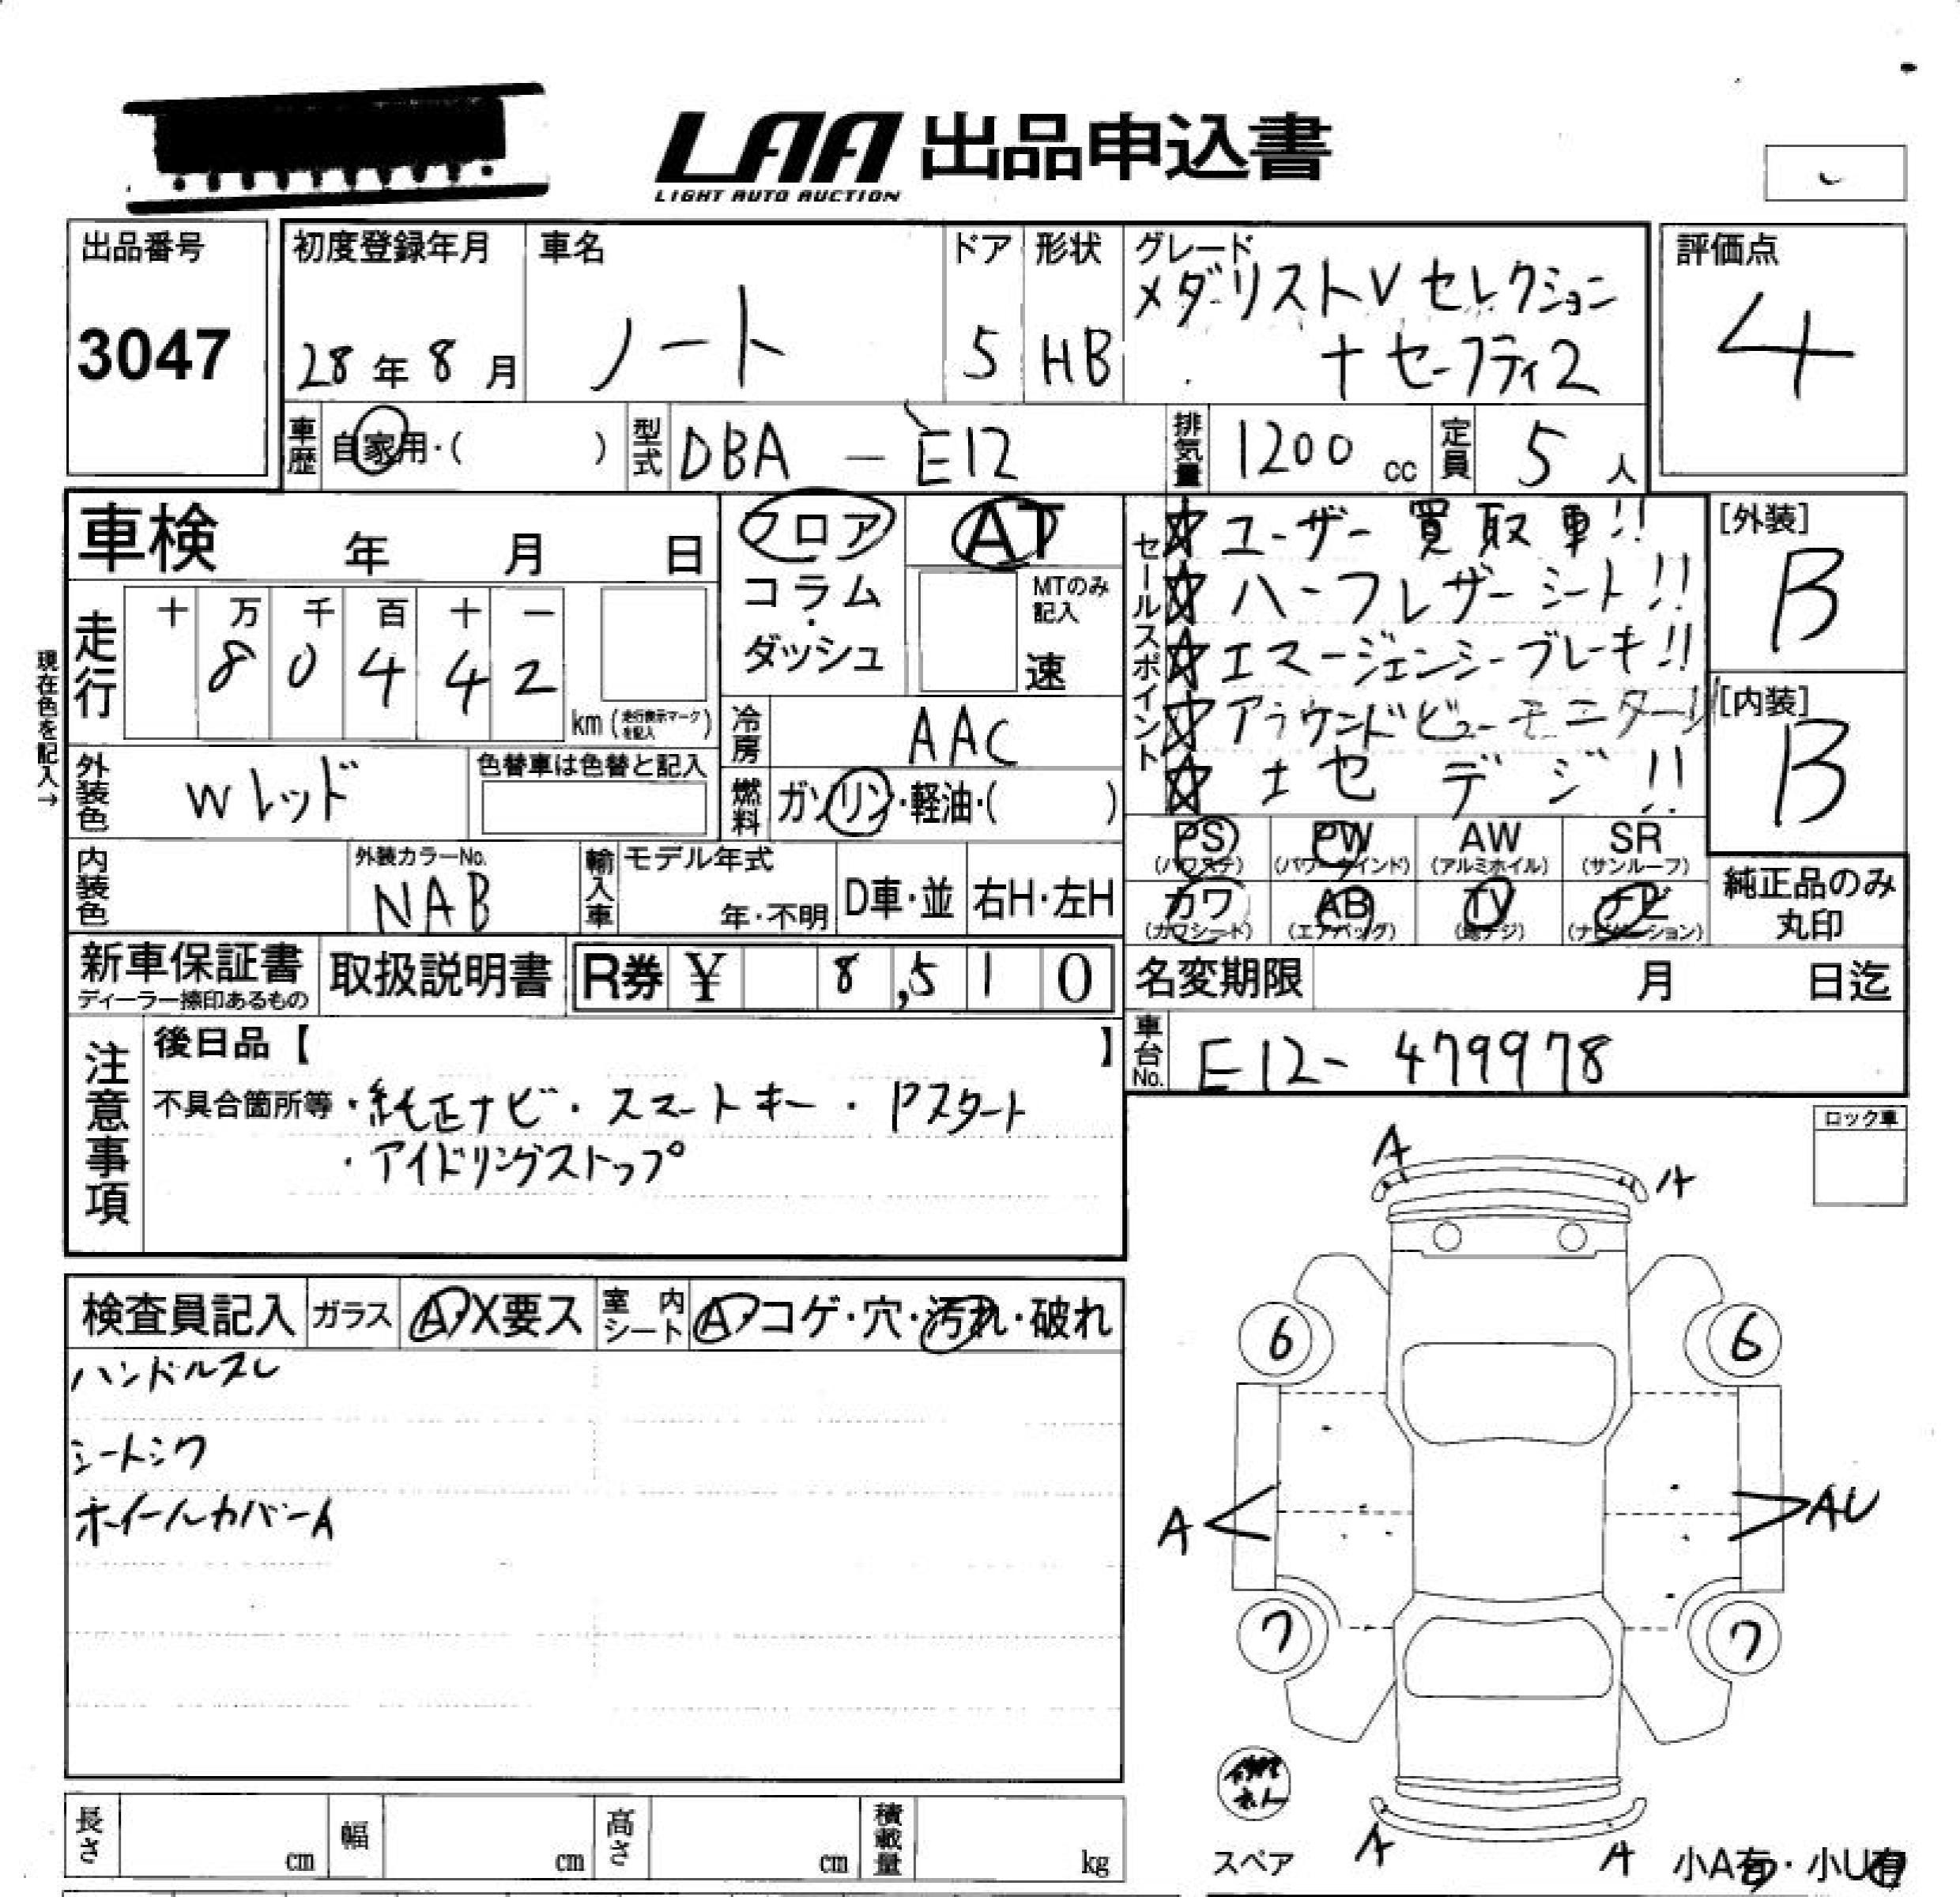 LAA 出品申込書
LIGHT AUTO AUCTION
出品番号
3047
初度登録年月
28年8月
車名
ノート
ドア
5
形状
HB
グレード
メダリストVセレクション
+セーフティ2
評価点
4
車歴
自家用・( )
型式
DBA - E12
排気量
1200 cc
定員
5 人
車検 年 月 日
フロア
コラム
・
ダッシュ
AT
MTのみ
記入
速
セールスポイント
☆ユーザー買取車!!
☆ハーフレザーシート!!
☆エマージェンシーブレーキ!!
☆アラウンドビューモニター!!
☆フルセグ地デジ!!
[外装]
B
[内装]
B
現在色を記入→
走行
十 万 千 百 十 一
8 0 4 4 2
km(走行表示マークを記入)
冷房
AAC
外装色
Wレッド
色替車は色替と記入
燃料
ガソリン・軽油・( )
PS
(パワステ)
PW
(パワーウインド)
AW
(アルミホイル)
SR
(サンルーフ)
カワ
(カワシート)
AB
(エアバッグ)
TV
(地デジ)
ナビ
(ナビゲーション)
純正品のみ
丸印
内装色
外装カラーNo.
NAB
輸入車
モデル年式
年・不明
D車・並
右H・左H
新車保証書
ディーラー捺印あるもの
取扱説明書
R券 ¥ 8,510
名変期限 月 日迄
車台No.
E12-479978
注意事項
後日品【 】
不具合箇所等・純正ナビ・スマートキー・Pスタート
・アイドリングストップ
ロック車
検査員記入
ガラス
A・X要ス
室内
シート
A・コゲ・穴・汚れ・破れ
ハンドルスレ
シートシワ
ホイールカバーA
A
A
6
6
A
AU
7
7
A
A
スペア
小A有・小U有
長さ cm
幅 cm
高さ cm
積載量 kg